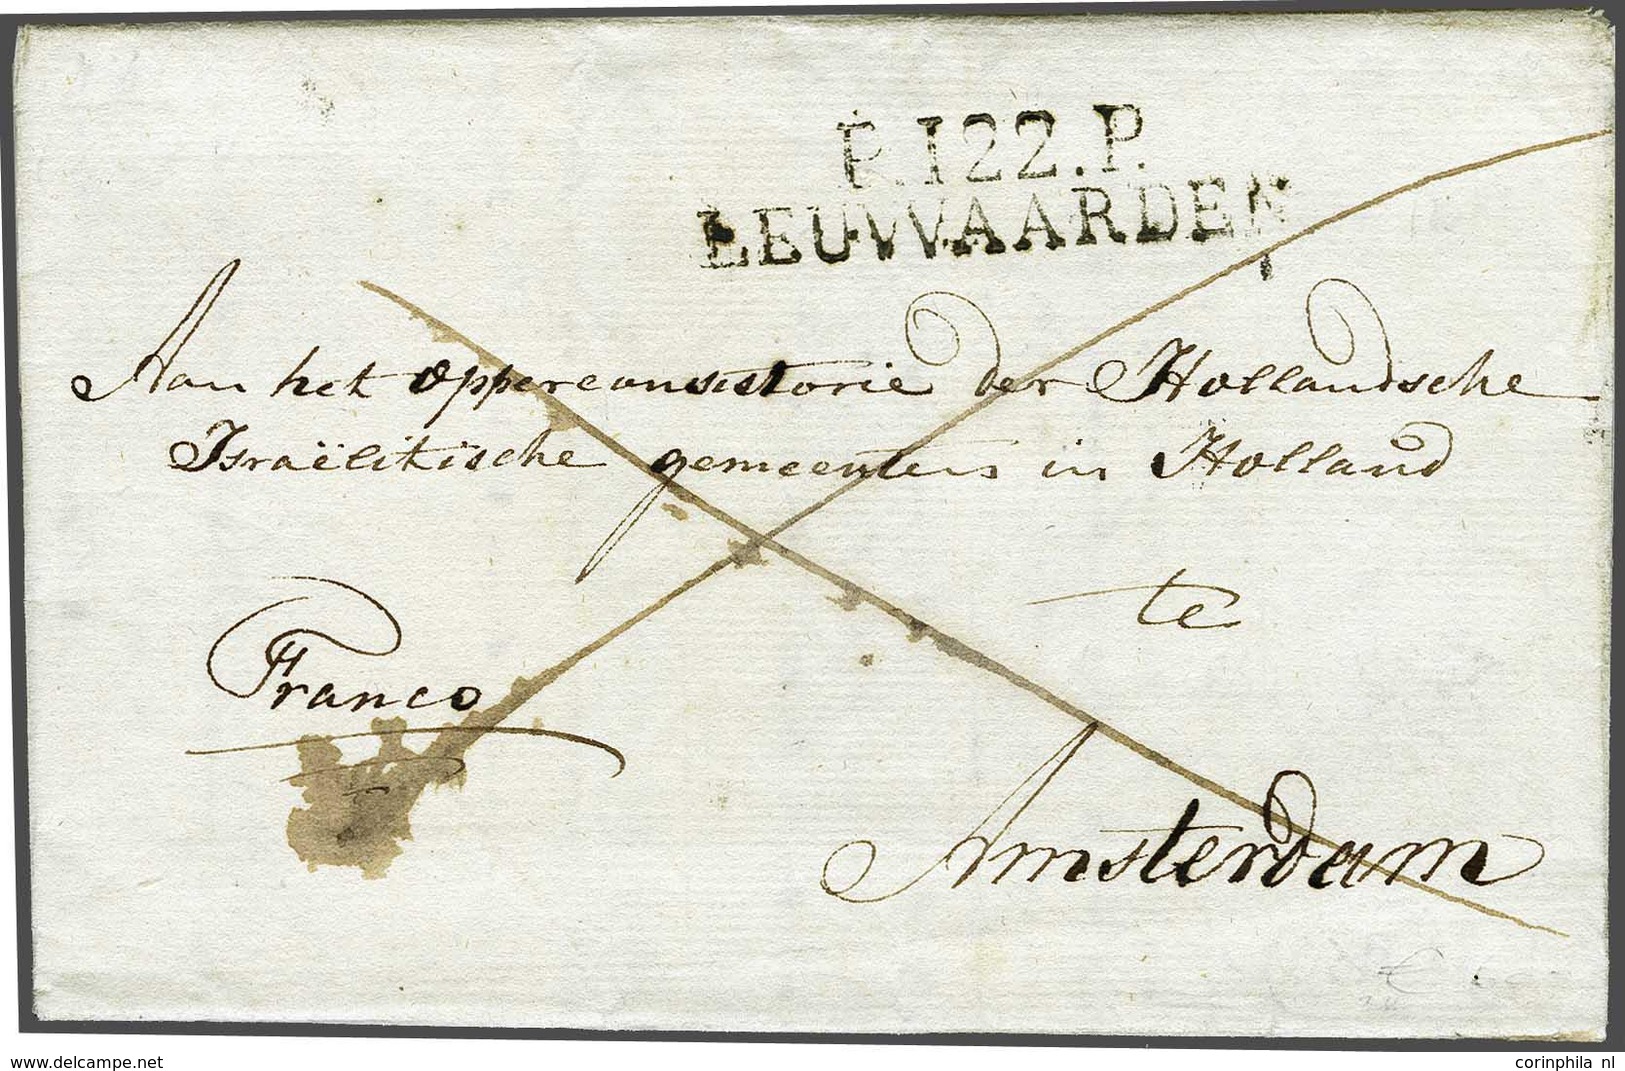 P.122.P.
LEUWAARDEN
Aan het opperconsistorie der Hollandsche
Israëlitische gemeentens in Holland
te
Franco
Amsterdam
www.delcampe.net
corinphila nl